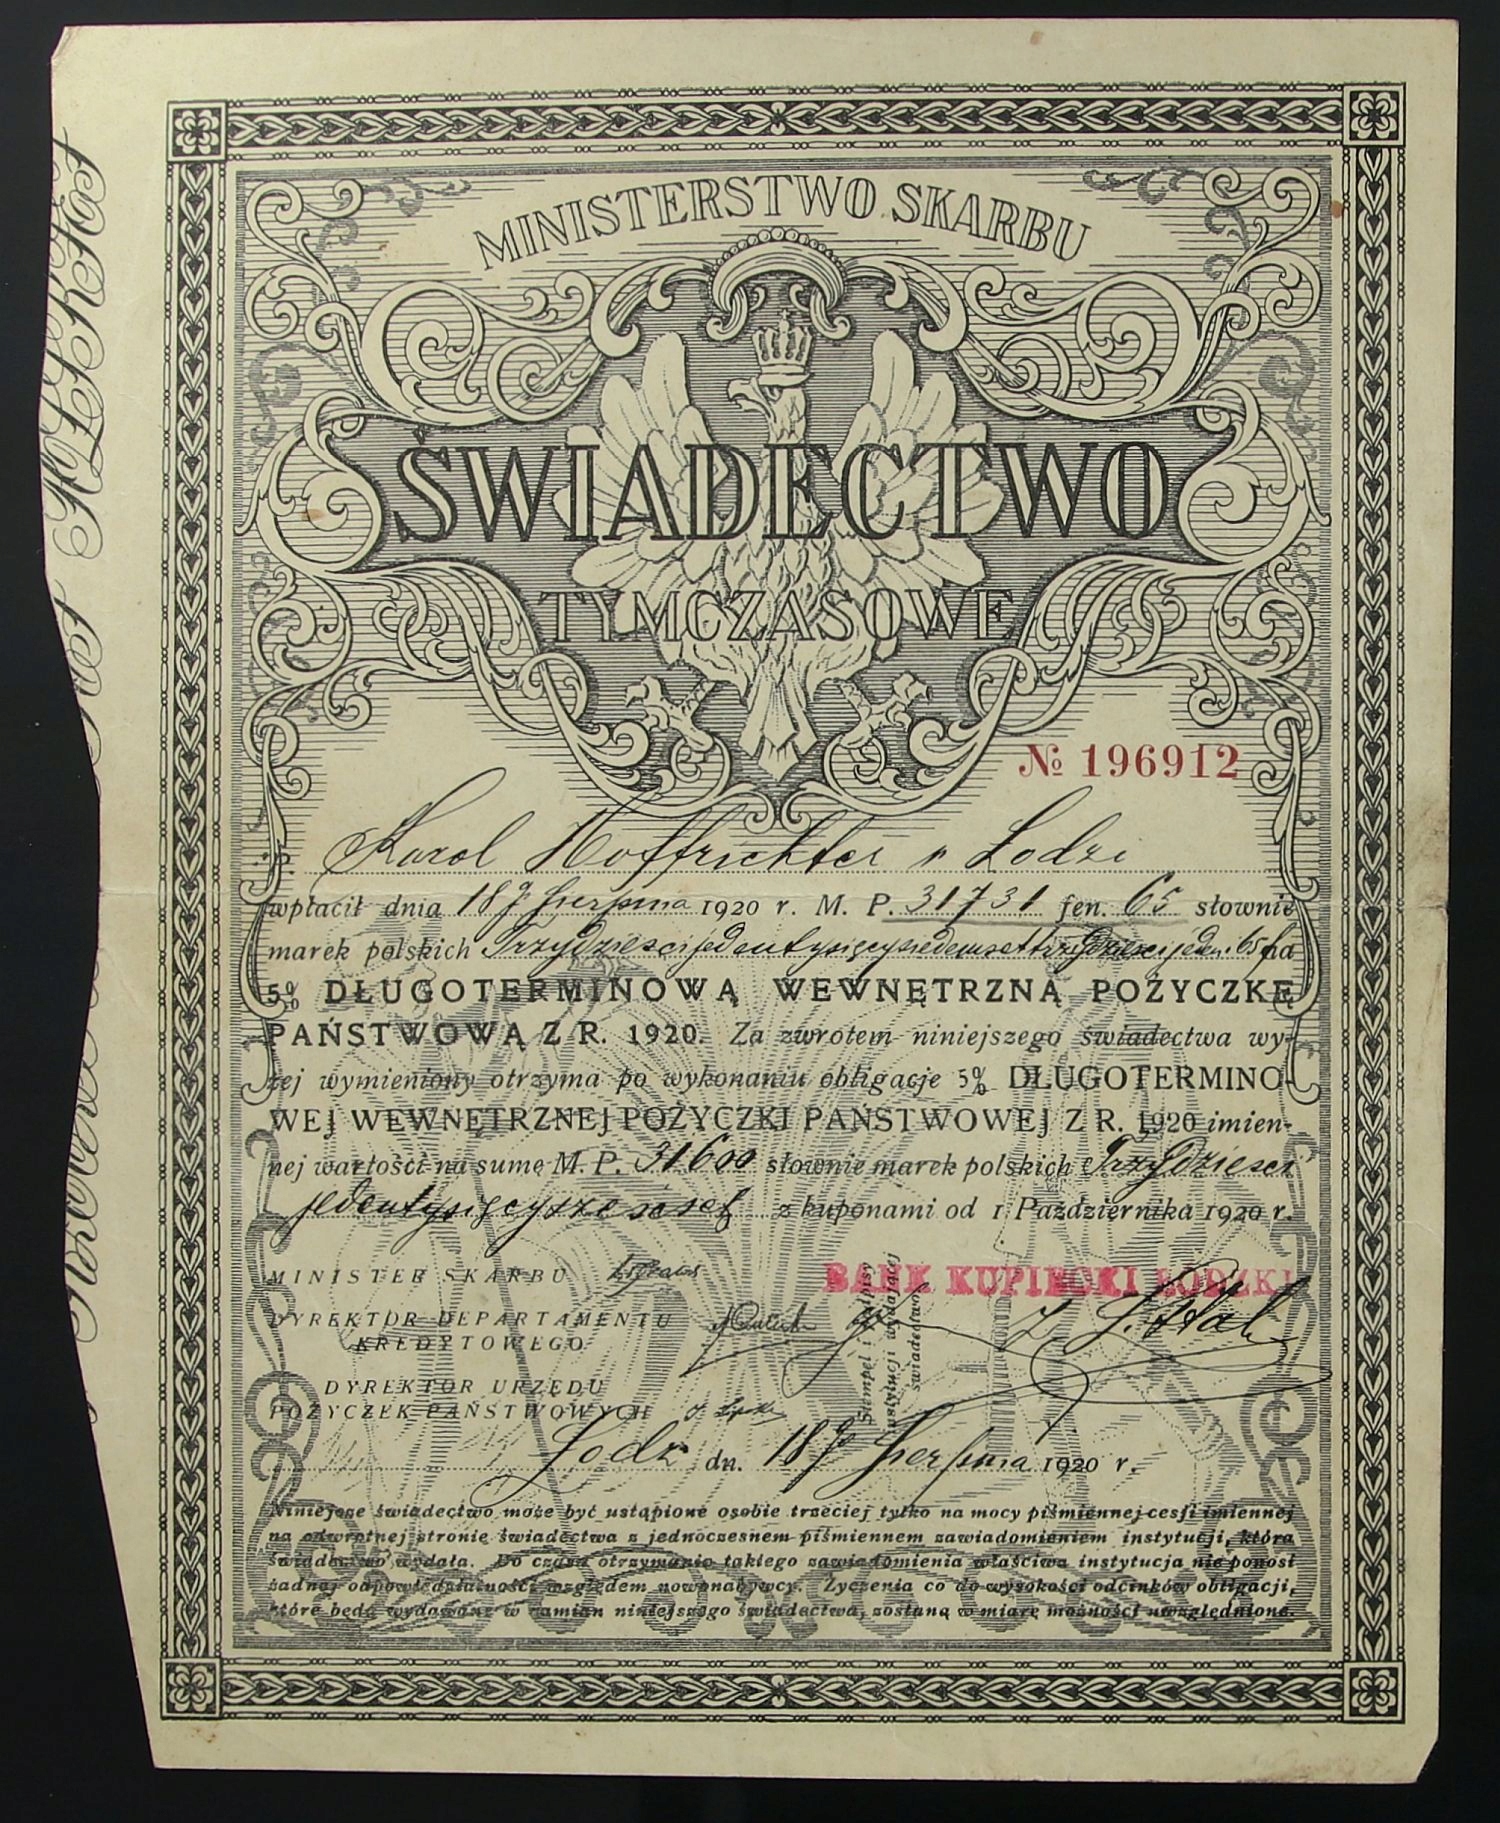 MINISTERSTWO SKARBU
ŚWIADECTWO
TYMCZASOWE
№ 196912
P. Karol Hoffrichter w Lodzi
wpłacił dnia 18go Sierpnia 1920 r. M. P. 31731 fen. 65 słownie
marek polskich Trzydzieścijedentysięcysiedemsettrzydzieścijeden i 65 f na
5% DŁUGOTERMINOWĄ WEWNĘTRZNĄ POŻYCZKĘ
PAŃSTWOWĄ Z R. 1920. Za zwrotem niniejszego świadectwa wy-
żej wymieniony otrzyma po wykonaniu obligacje 5% DŁUGOTERMINO-
WEJ WEWNĘTRZNEJ POŻYCZKI PAŃSTWOWEJ Z R. 1920 imien-
nej wartości na sumę M. P. 31600 słownie marek polskich Trzydzieści
jedentysięcysześćset z kuponami od 1 Października 1920 r.
MINISTER SKARBU
BANK KUPIECKI ŁÓDZKI
DYREKTOR DEPARTAMENTU
KREDYTOWEGO
Stempel i podpisy
instytucji wydającej
świadectwo
DYREKTOR URZĘDU
POŻYCZEK PAŃSTWOWYCH
Lodz dn. 18go Sierpnia 1920 r.
Niniejsze świadectwo może być ustąpione osobie trzeciej tylko na mocy piśmiennej cesji imiennej
na odwrotnej stronie świadectwa z jednoczesnem piśmiennem zawiadomieniem instytucji, która
świadectwo wydała. Do czasu otrzymania takiego zawiadomienia właściwa instytucja nie ponosi
żadnej odpowiedzialności względem nowonabywcy. Życzenia co do wysokości odcinków obligacji,
które będą wydawane w zamian niniejszego świadectwa, zostaną w miarę możności uwzględnione.